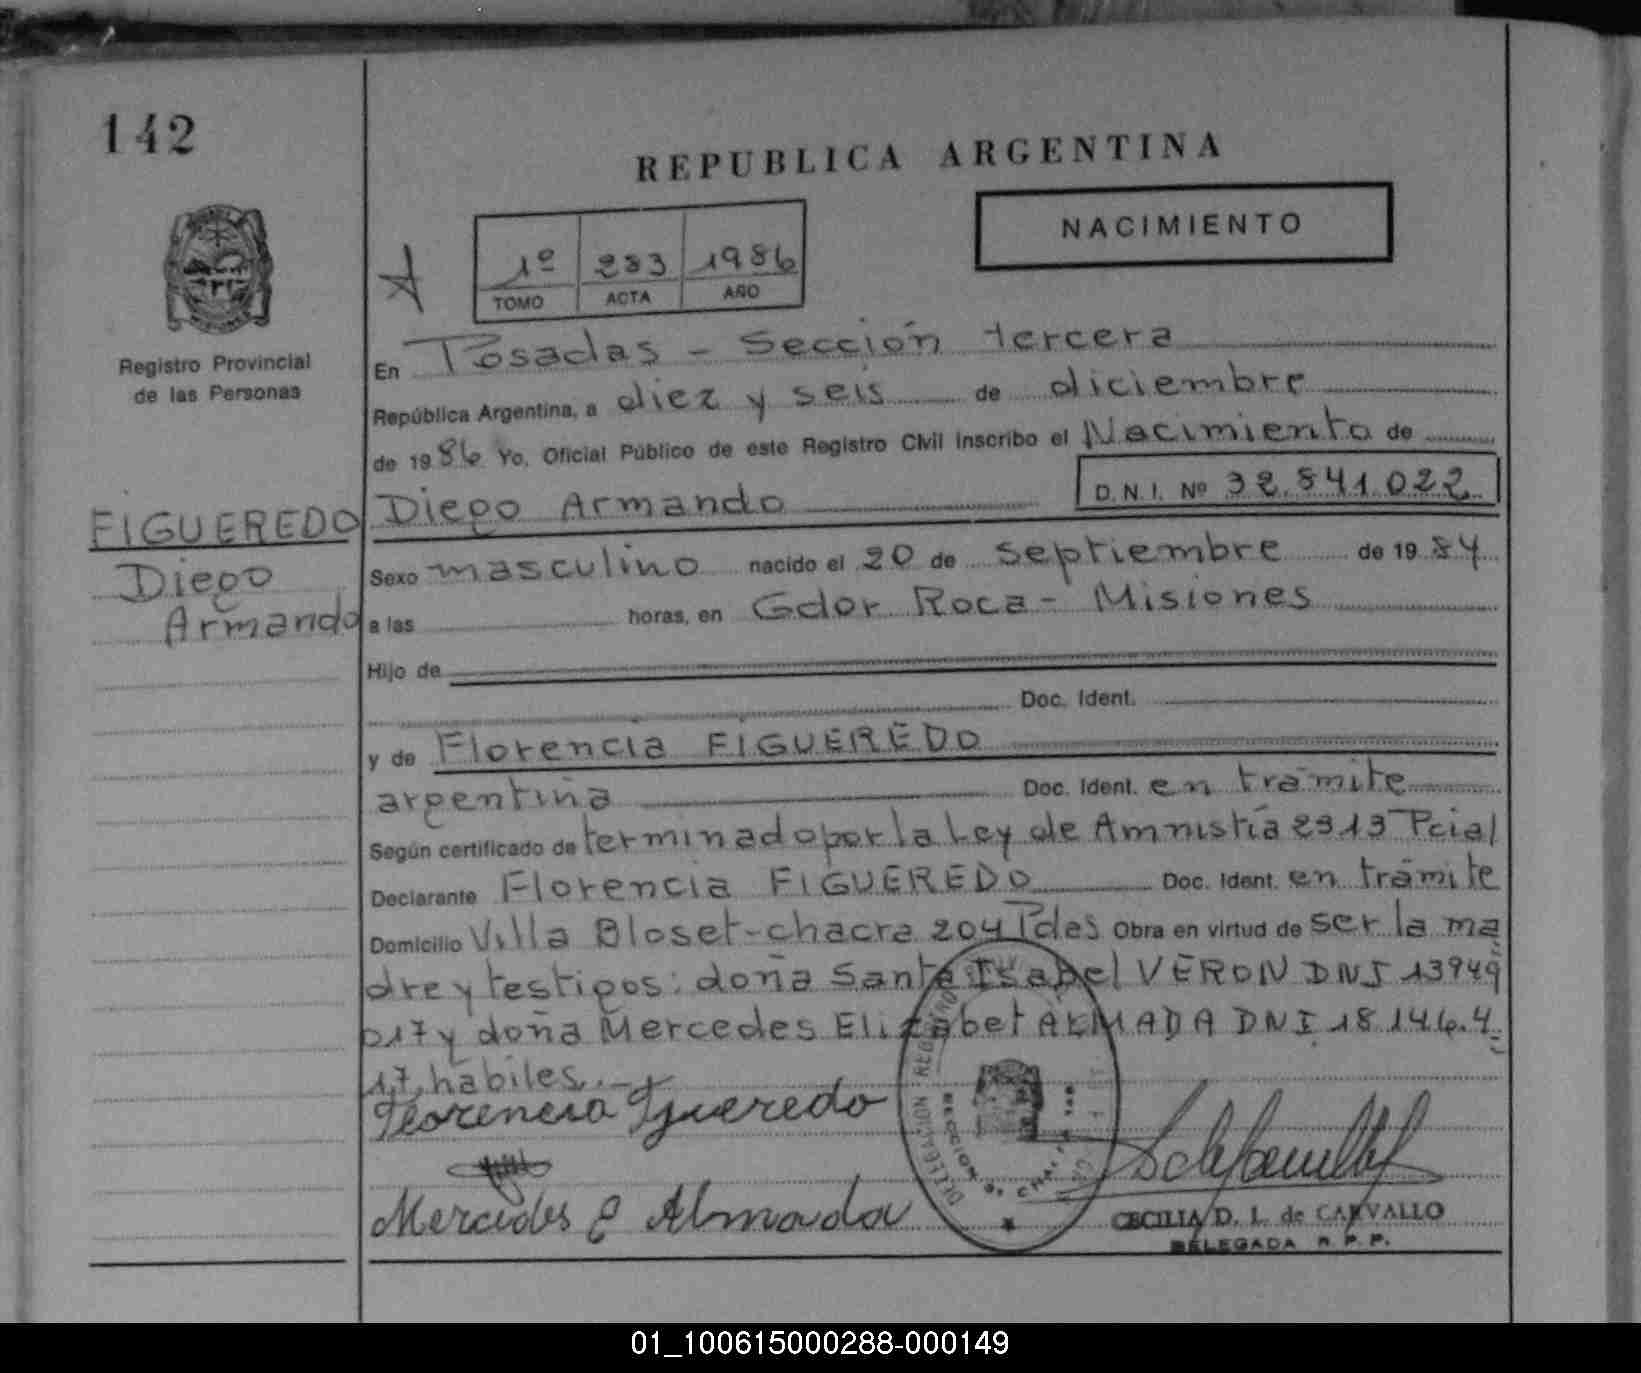 142
REPUBLICA ARGENTINA
NACIMIENTO
1º 283 1986
TOMO ACTA AÑO
Registro Provincial
de las Personas
En Posadas - Sección tercera
República Argentina, a diez y seis de diciembre
de 1986 Yo, Oficial Público de este Registro Civil inscribo el Nacimiento de
D.N.I. Nº 32.841.022
FIGUEREDO
Diego
Armando
Diego Armando
Sexo masculino nacido el 20 de septiembre de 1984
a las horas, en Gdor Roca - Misiones
Hijo de
Doc. Ident.
y de Florencia FIGUEREDO
argentina Doc. Ident. en trámite
Según certificado de terminado por la Ley de Amnistía 2313 Pcial
Declarante Florencia FIGUEREDO Doc. Ident. en trámite
Domicilio Villa Bloset-chacra 204 Pdes Obra en virtud de ser la ma
dre y testigos: doña Santa Isabel VERON DNI 13949
017 y doña Mercedes Elizabet ALMADA DNI 18.146.4
17, hábiles.-
Florencia Figueredo
Mercedes E Almada
DELEGACION
CECILIA D. L. de CARVALLO
DELEGADA R. P. P.
01_100615000288-000149